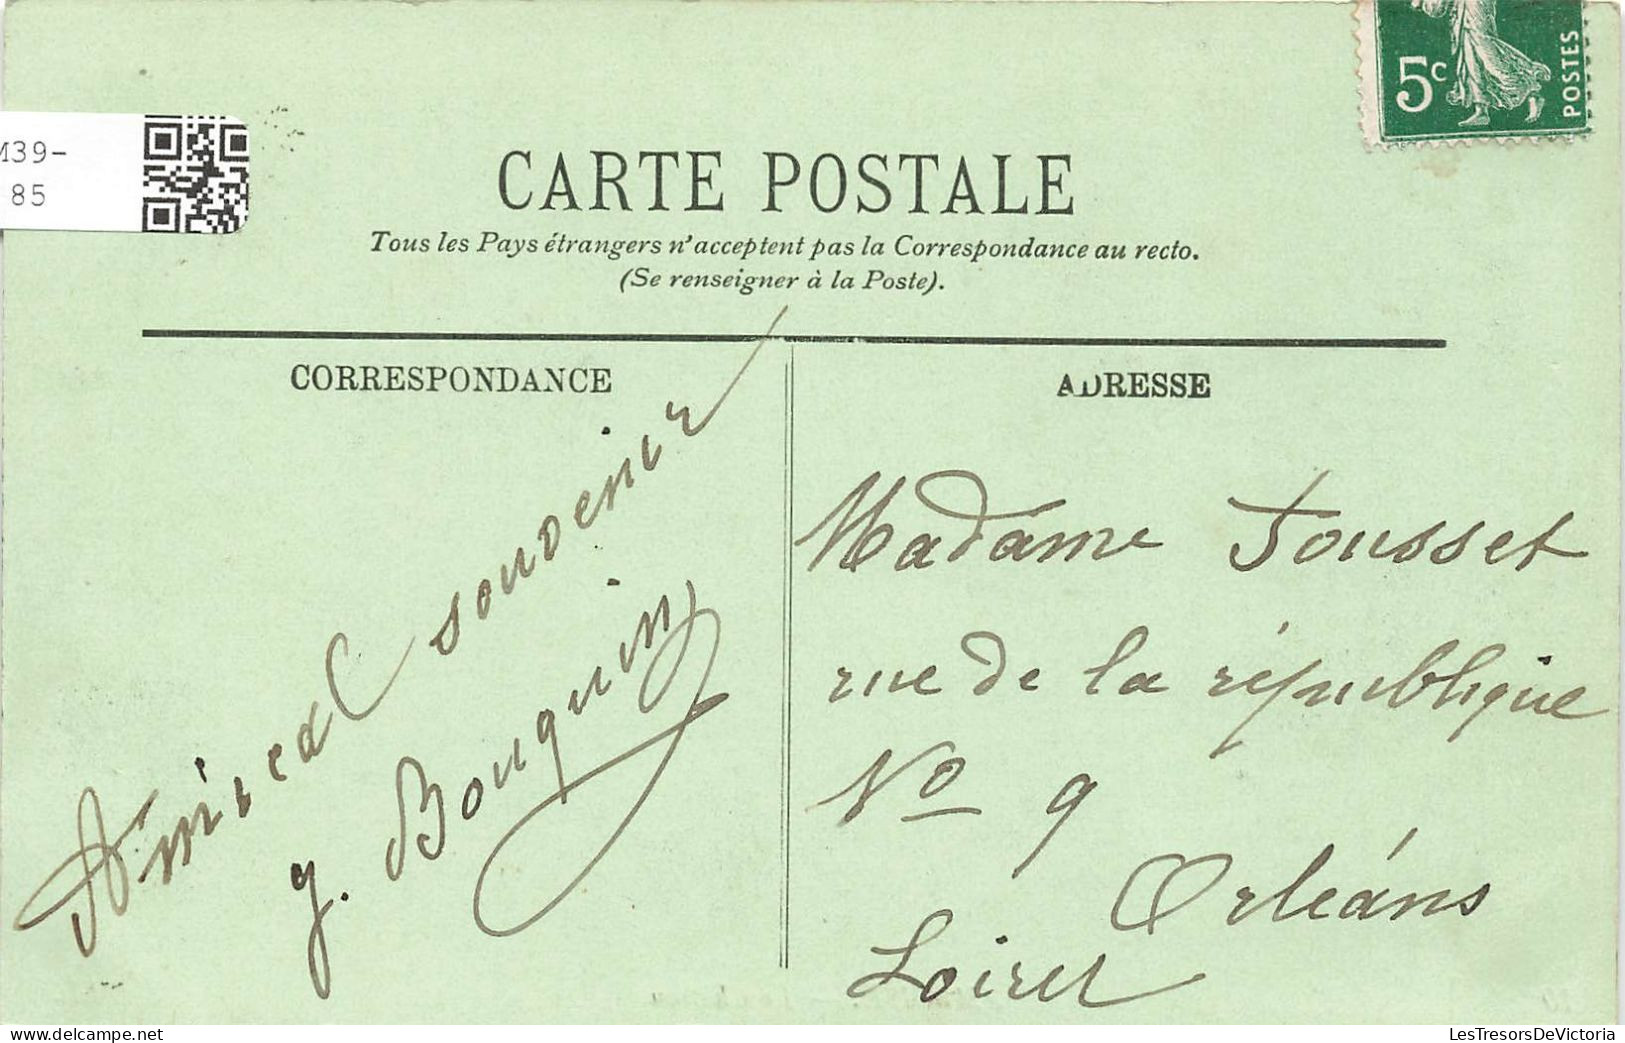 5c
POSTES
M39-
85
CARTE POSTALE
Tous les Pays étrangers n'acceptent pas la Correspondance au recto.
(Se renseigner à la Poste).
CORRESPONDANCE
Amical souvenir
J. Bouquin
ADRESSE
Madame Tousset
rue de la république
No 9
Orléans
Loiret
LesTresorsDeVictoria